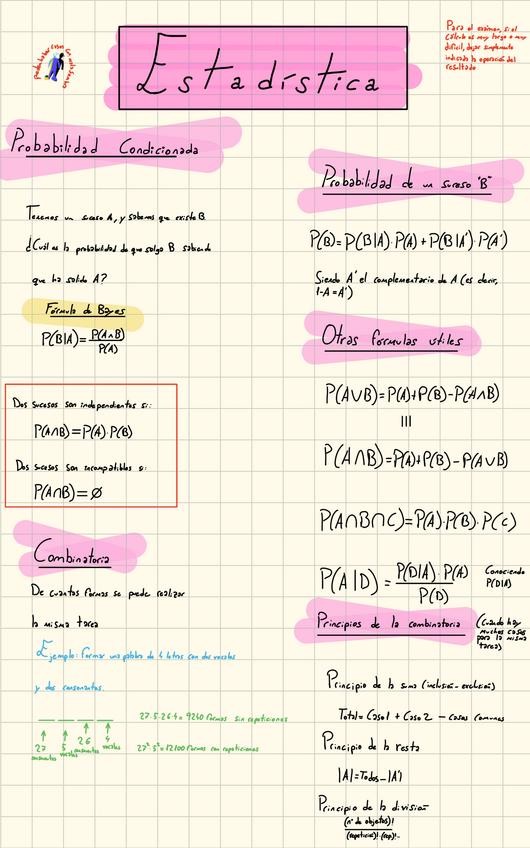 Estadística
Para el examen, si el
cálculo es muy largo o muy
difícil, dejar simplemente
indicada la operación del
resultado
Probabilidad Condicionada
Tenemos un suceso A, y sabemos que existe B
¿Cuál es la probabilidad de que salga B sabiendo
que ha salido A?
Fórmula de Bayes
P(B|A)=P(A∩B)/P(A)
Dos sucesos son independientes si:
P(A∩B)=P(A)·P(B)
Dos sucesos son incompatibles si:
P(A∩B)=∅
Combinatoria
De cuantas formas se puede realizar
la misma tarea
Ejemplo: Formar una palabra de 4 letras con dos vocales
y dos consonantes.
27·5·26·4=9240 formas sin repeticiones
27 5 26 4
consonantes vocales consonantes vocales
27²·5²=12100 formas con repeticiones
Probabilidad de un suceso "B"
P(B)=P(B|A)·P(A)+P(B|A')·P(A')
Siendo A' el complementario de A (es decir,
1-A=A')
Otras fórmulas utiles
P(A∪B)=P(A)+P(B)-P(A∩B)
|||
P(A∩B)=P(A)+P(B)-P(A∪B)
P(A∩B∩C)=P(A)·P(B)·P(C)
P(A|D)=P(D|A)·P(A)/P(D)
Conociendo
P(D|A)
Principios de la combinatoria
(Cuando hay
muchos casos
para la misma
tarea)
Principio de la suma (inclusión-exclusión)
Total=Caso1+Caso2-casos comunes
Principio de la resta
|A|=Todos-|A'|
Principio de la división
(nº de objetos)!
(repeticion)!·(rep)!...